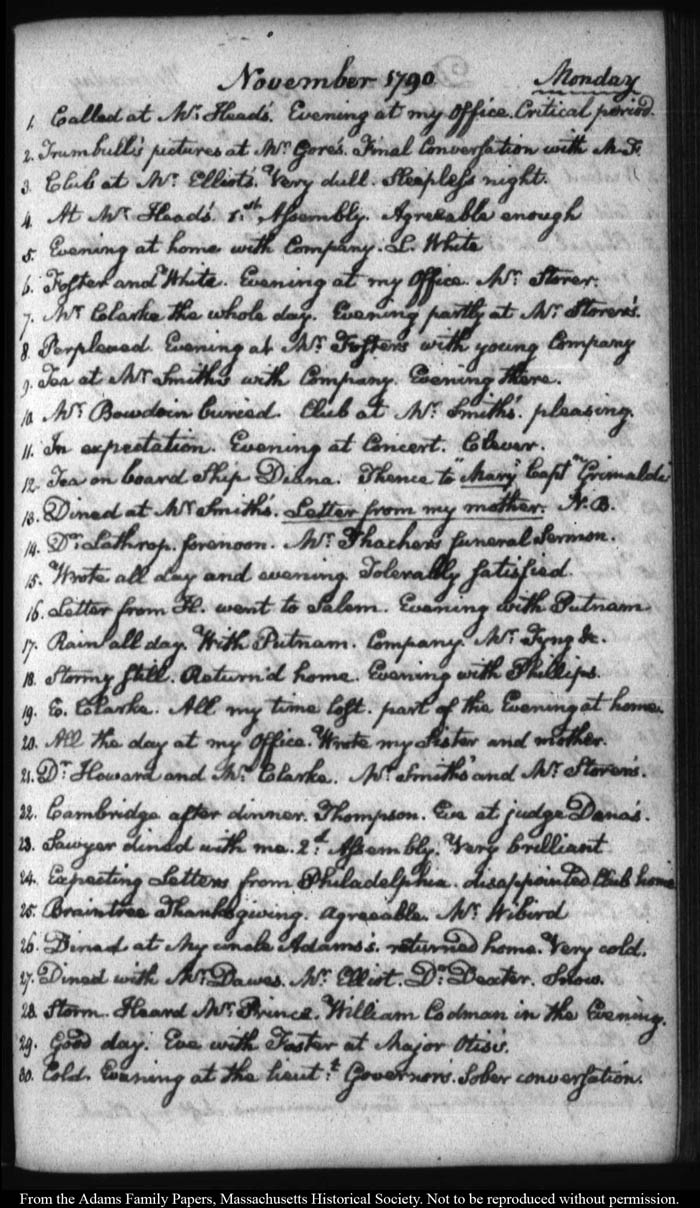 November 1790 Monday
1. Called at Mr. Head's. Evening at my Office. Critical period.
2. Trumbull's pictures at Mr. Gore's. Final Conversation with M.F.
3. Club at Mr. Elliot's. Very dull. Sleepless night.
4. At Mr. Head's. 1.st Assembly. Agreeable enough
5. Evening at home with Company. L. White
6. Foster and White. Evening at my Office. Mr. Storer.
7. Mr. Clarke the whole day. Evening partly at Mr. Storer's.
8. Perplexed. Evening at Mr. Foster's with young Company
9. Tea at Mr. Smith's with Company. Evening there.
10. Mr. Bowdoin buried. Club at Mr. Smith's. pleasing.
11. In expectation. Evening at Concert. Clever.
12. Tea on board Ship Diana. Thence to "Mary" Capt. "Grimalde"
13. Dined at Mr. Smith's. Letter from my mother. N.B.
14. Dr. Lathrop. forenoon. Mr. Thacher's funeral Sermon.
15. Wrote all day and evening. Tolerably satisfied.
16. Letter from H. went to Salem. Evening with Putnam
17. Rain all day. With Putnam. Company. Mr. Tyng &c.
18. Stormy still. Return'd home. Evening with Phillips.
19. E. Clarke. All my time lost. part of the Evening at home.
20. All the day at my Office. Wrote my Sister and mother.
21. Dr. Howard and Mr. Clarke. Mr. Smith's and Mr. Storer's.
22. Cambridge after dinner. Thompson. Eve at judge Dana's.
23. Sawyer dined with me. 2.d Assembly. Very brilliant
24. Expecting Letters from Philadelphia. disappointed Club home
25. Braintree Thanksgiving. agreeable. Mr. Wibird
26. Dined at My uncle Adams's. returned home. Very cold.
27. Dined with Mr. Dawes. Mr. Elliot. Dr. Dexter. Snow.
28. Storm. Heard Mr. Prince. William Codman in the Evening.
29. Good day. Eve with Foster at Major Otis's.
30. Cold. Evening at the lieut.t Governor's. Sober conversation.
From the Adams Family Papers, Massachusetts Historical Society. Not to be reproduced without permission.